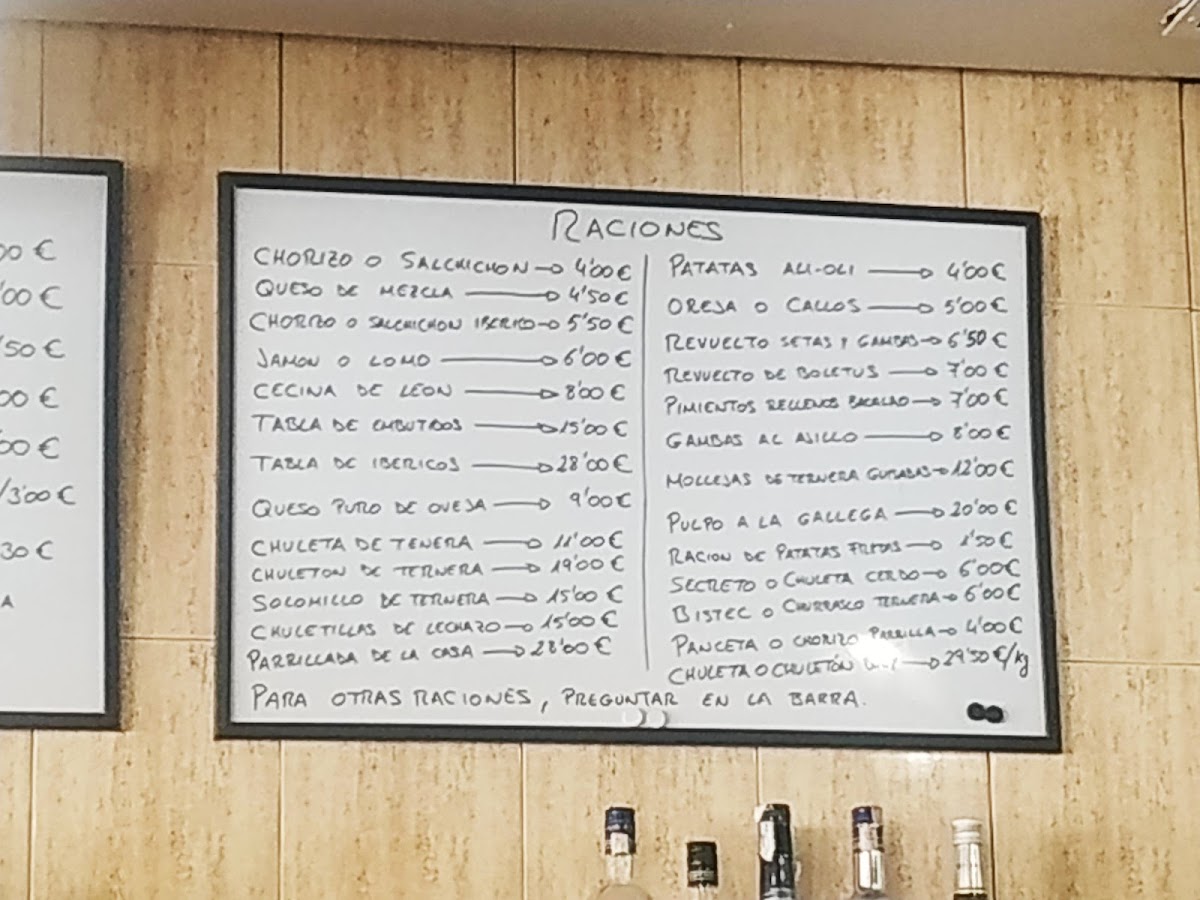 00 €
'00 €
'50 €
00 €
00 €
/3'00 €
30 €
A
RACIONES
CHORIZO O SALCHICHON → 4'00 €
QUESO DE MEZCLA → 4'50 €
CHORIZO O SALCHICHON IBERICO → 5'50 €
JAMON O LOMO → 6'00 €
CECINA DE LEON → 8'00 €
TABLA DE EMBUTIDOS → 15'00 €
TABLA DE IBERICOS → 28'00 €
QUESO PURO DE OVEJA → 9'00 €
CHULETA DE TENERA → 11'00 €
CHULETON DE TERNERA → 19'00 €
SOLOMILLO DE TERNERA → 15'00 €
CHULETILLAS DE LECHAZO → 15'00 €
PARRILLADA DE LA CASA → 28'00 €
PATATAS ALI-OLI → 4'00 €
OREJA O CALLOS → 5'00 €
REVUELTO SETAS Y GAMBAS → 6'50 €
REVUELTO DE BOLETUS → 7'00 €
PIMIENTOS RELLENOS BACALAO → 7'00 €
GAMBAS AL AJILLO → 8'00 €
MOLLEJAS DE TERNERA → 12'00 €
PULPO A LA GALLEGA → 20'00 €
RACION DE PATATAS FRITAS → 1'50 €
SECRETO O CHULETA CERDO → 6'00 €
BISTEC O CHURRASCO TERNERA → 6'00 €
PANCETA O CHORIZO PARRILLA → 4'00 €
CHULETA O CHULETÓN → 29'50 €/kg
PARA OTRAS RACIONES, PREGUNTAR EN LA BARRA.